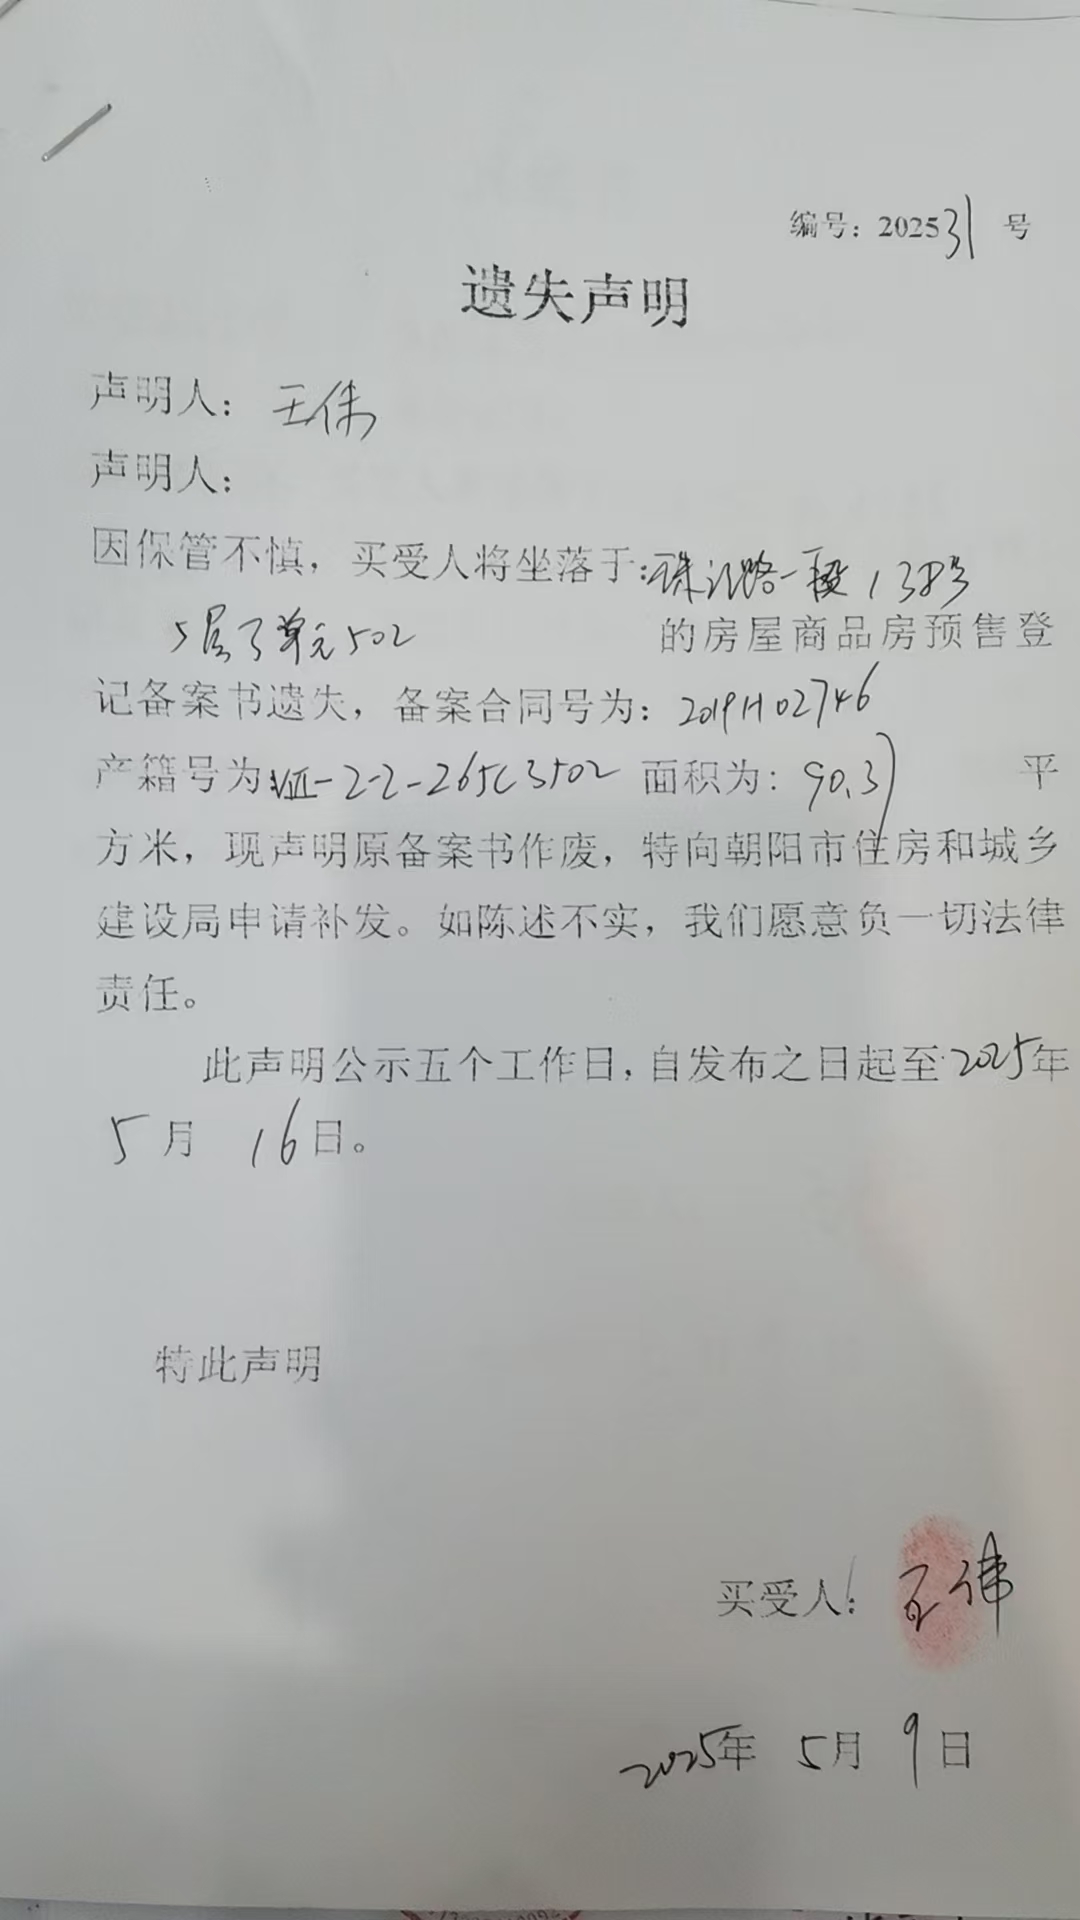 编号：202531 号
遗失声明
声明人：王伟
声明人：
因保管不慎，买受人将坐落于：珠江路一段138号
5层3单元502 的房屋商品房预售登
记备案书遗失，备案合同号为：2019H02746
产籍号为：Ⅶ-2-2-265C3502 面积为：90.37 平
方米，现声明原备案书作废，特向朝阳市住房和城乡
建设局申请补发。如陈述不实，我们愿意负一切法律
责任。
此声明公示五个工作日，自发布之日起至2025年
5月 16日。
特此声明
买受人：王伟
2025年 5月 9日